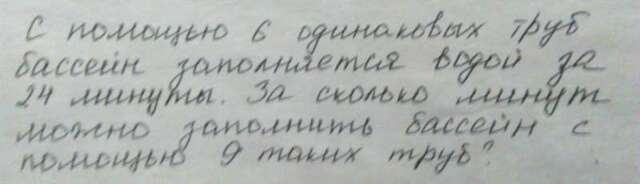 С помощью 6 одинаковых труб
бассейн заполняется водой за
24 минуты. За сколько минут
можно заполнить бассейн с
помощью 9 таких труб?